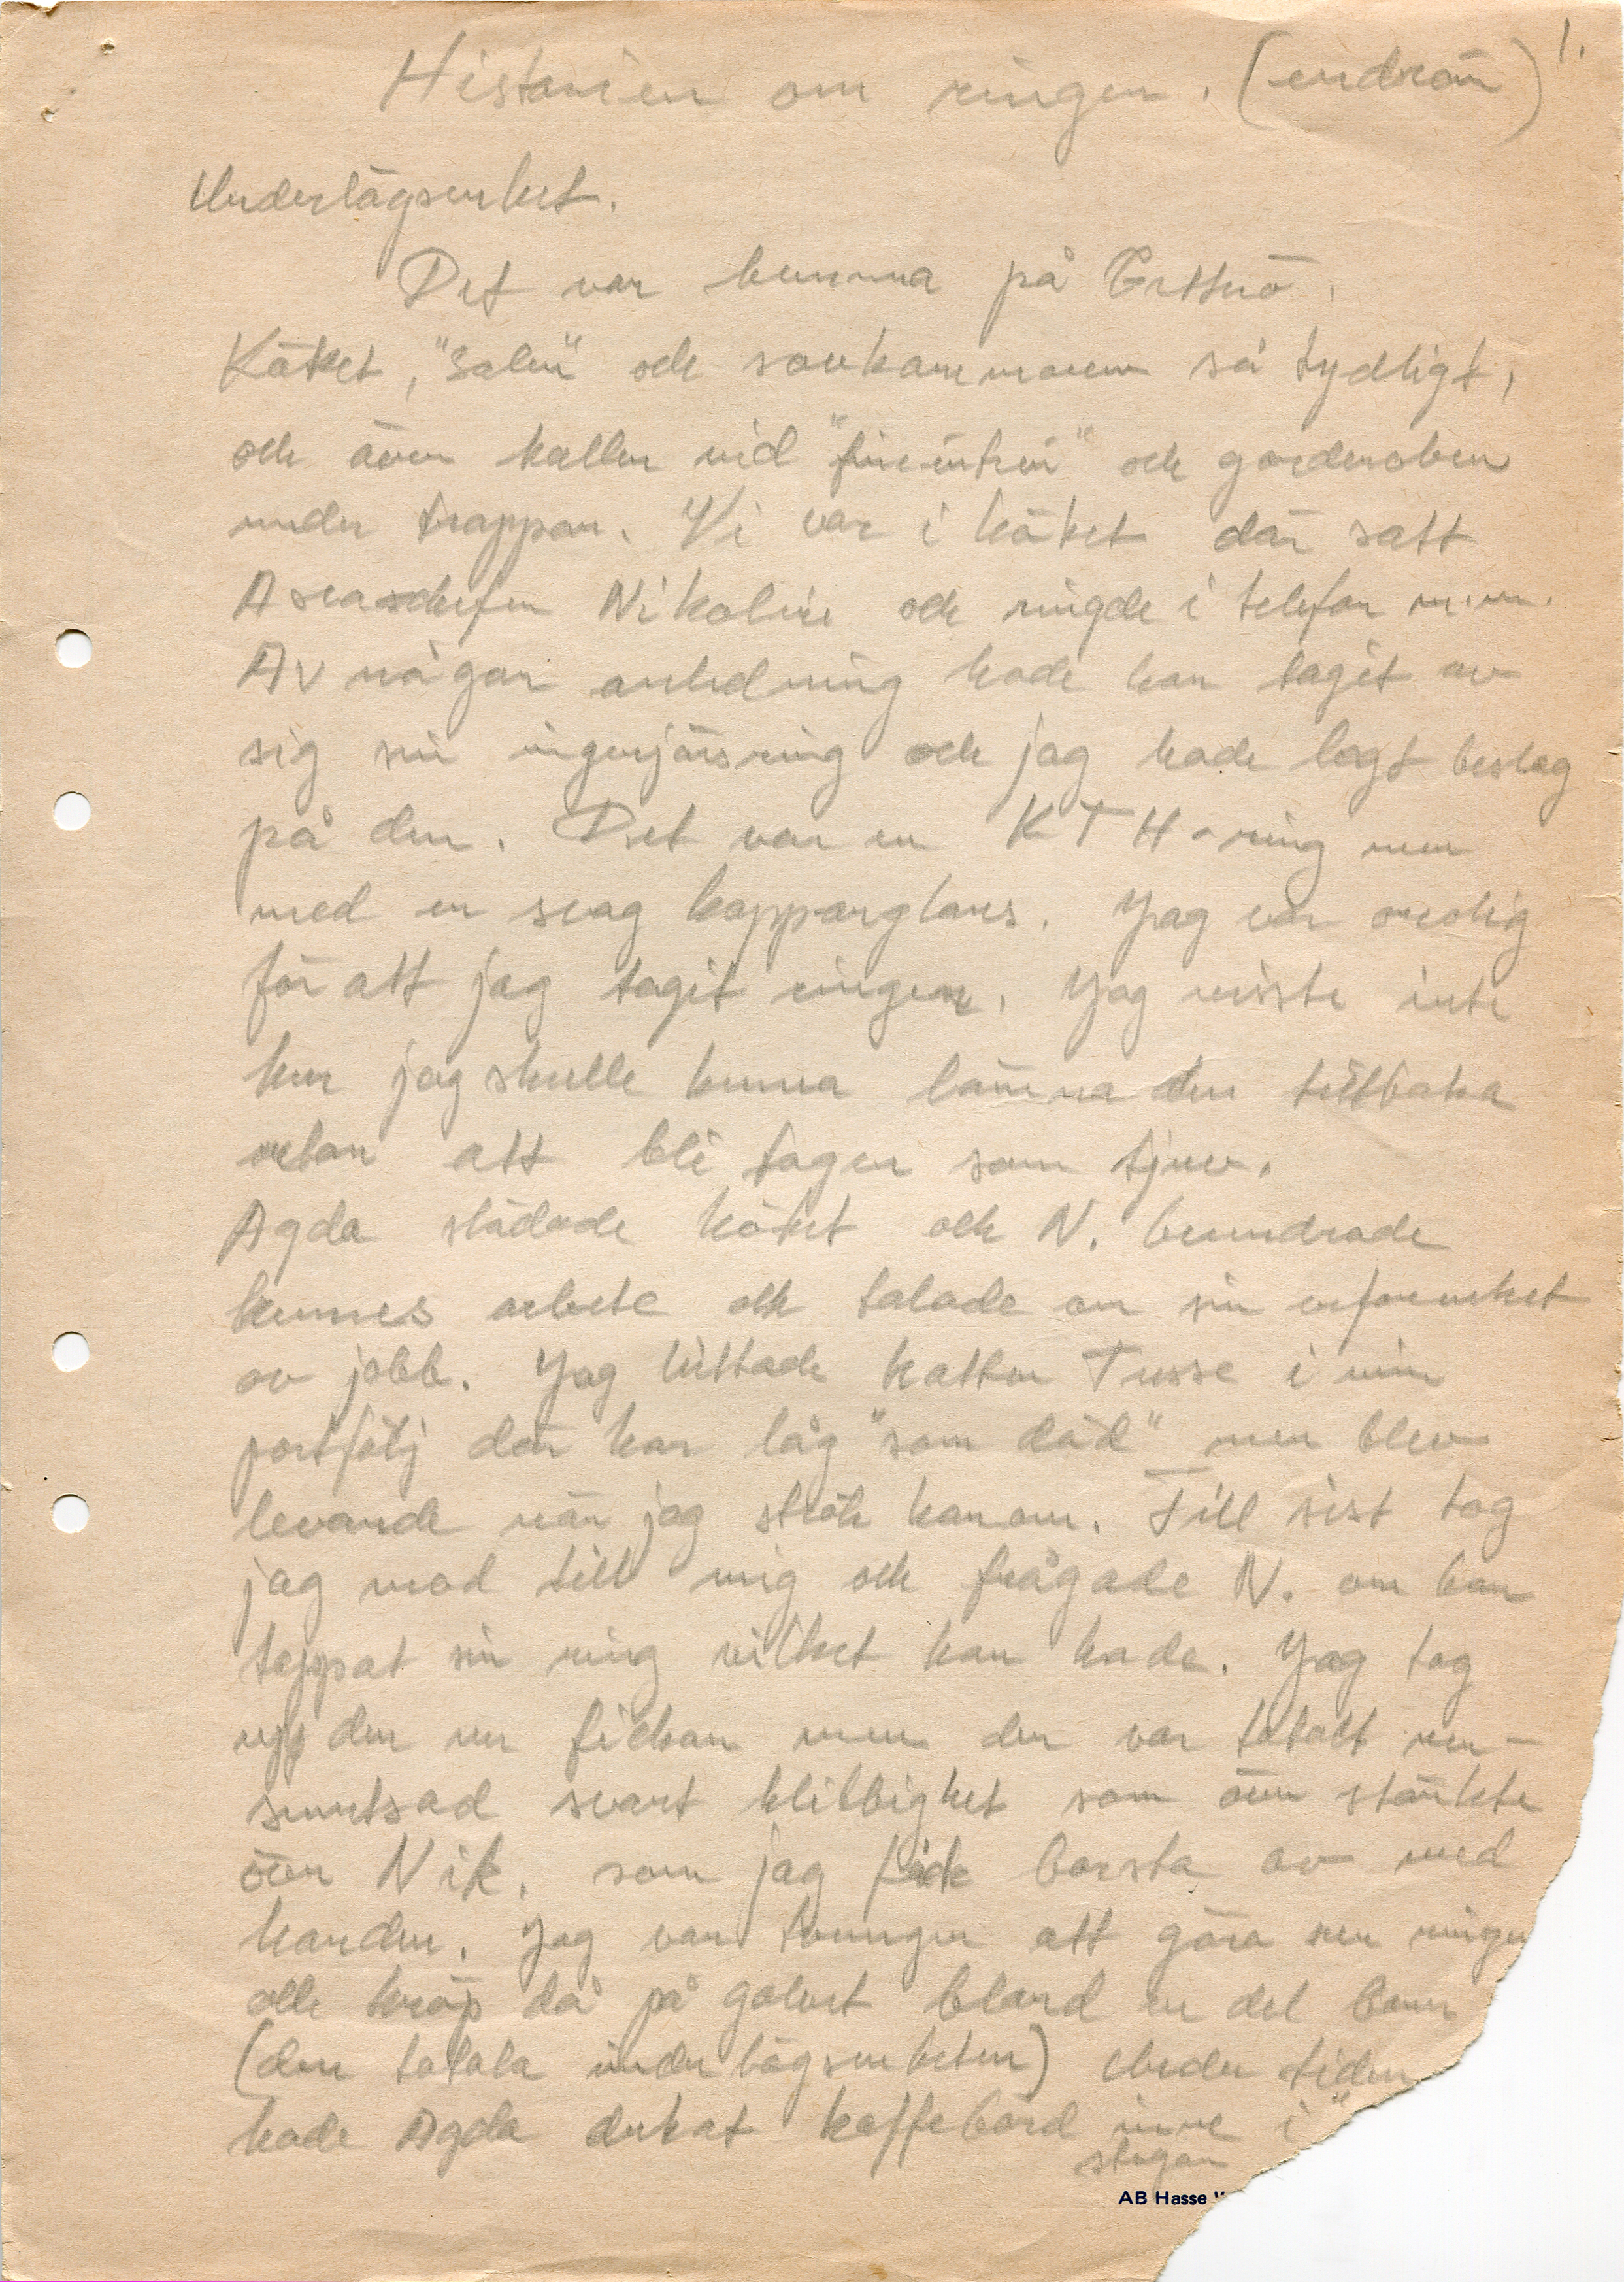 1.
Historien om ringen. (en dröm)
Underlägsenhet.
Det var hemma på
Köket, "Salen" och sovkammaren så tydligt,
och även hallen vid "finentrén" och garderoben
under trappan. Vi var i köket där satt
Aseachefen Nikolin och ringde i telefon m.m.
Av någon anledning hade han tagit av
sig sin ingenjörsring och jag hade lagt beslag
på den. Det var en KTH-ring men
med en svag kopparglans. Jag var orolig
för att jag tagit ringen. Jag visste inte
hur jag skulle kunna lämna den tillbaka
utan att bli tagen som tjuv.
Agda städade köket och N. beundrade
hennes arbete och talade om sin erfarenhet
av jobb. Jag hittade katten Tusse i min
portfölj där han låg "som död" men blev
levande när jag strök honom. Till sist tog
jag mod till mig och frågade N. om han
tappat sin ring vilket han hade. Jag tog
upp den ur fickan men den var totalt ner-
smutsad svart klibbighet som även stänkte
över Nik. som jag fick borsta av med
handen. Jag var tvungen att göra ren ringen
och kröp då på golvet bland en del barn
(den totala underlägsenheten) Under tiden
hade Agda dukat kaffebord inne i "
stugan
AB Hasse